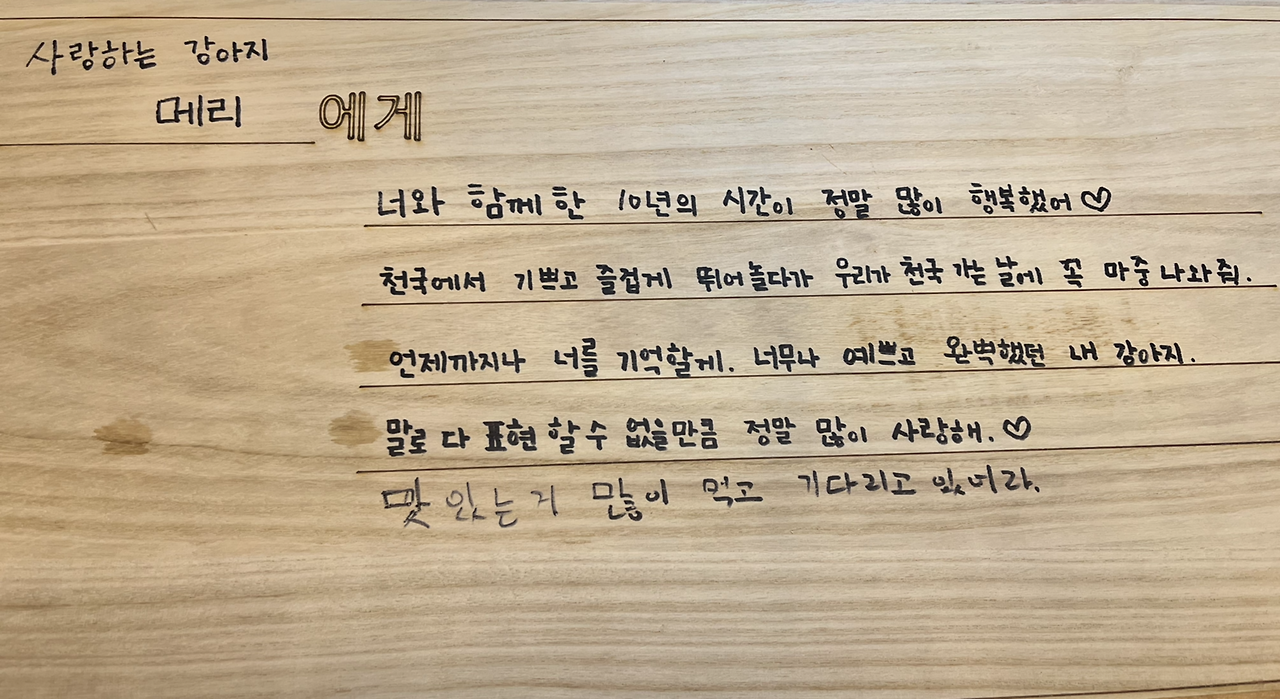 사랑하는 강아지
메리 에게
너와 함께한 10년의 시간이 정말 많이 행복했어♡
천국에서 기쁘고 즐겁게 뛰어놀다가 우리가 천국 가는 날에 꼭 마중 나와줘.
언제까지나 너를 기억할게. 너무나 예쁘고 완벽했던 내 강아지.
말로 다 표현 할 수 없을만큼 정말 많이 사랑해.♡
맛있는거 많이 먹고 기다리고 있어라.